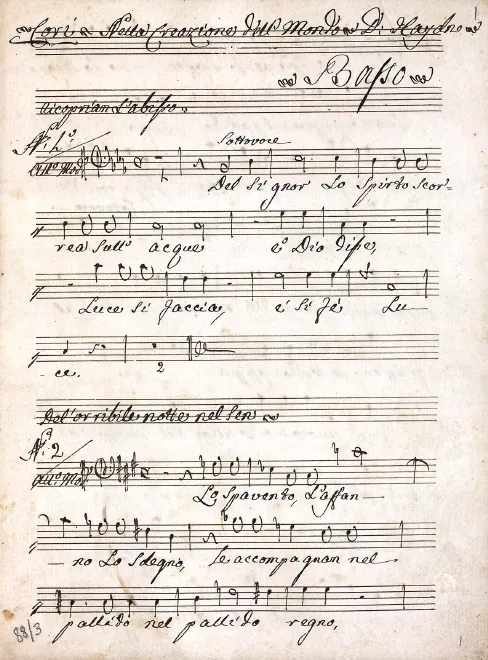 Cori Nella Creazione dell' Mondo Di Haydn
1
Basso
ricoprian l'abisso.
N.º 1.º
Sottovoce
And.no Mod.to
Del Signor Lo Spirto Scor-
rea Sull' acque e Dio disse,
Luce si faccia, é Si Fé Lu-
- ce. 2
Del' orribile notte nel Sen
N.º 2
All.º Mod.to
Lo Spavento, L'affan-
- no Lo Sdegno, Se accompagnan nel
pallido nel pallido regno,
88/3
1